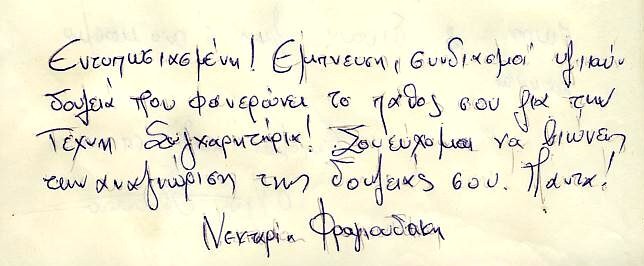 Εντυπωσιασμένη! Έμπνευση, συνδιασμοί υλικών
δουλειά που φανερώνει το πάθος σου για την
Τέχνη Συγχαρητήρια! Σου εύχομαι να βιώνεις
την αναγνώριση της δουλειάς σου. Πάντα!
Νεκταρία Φραγιουδάκη